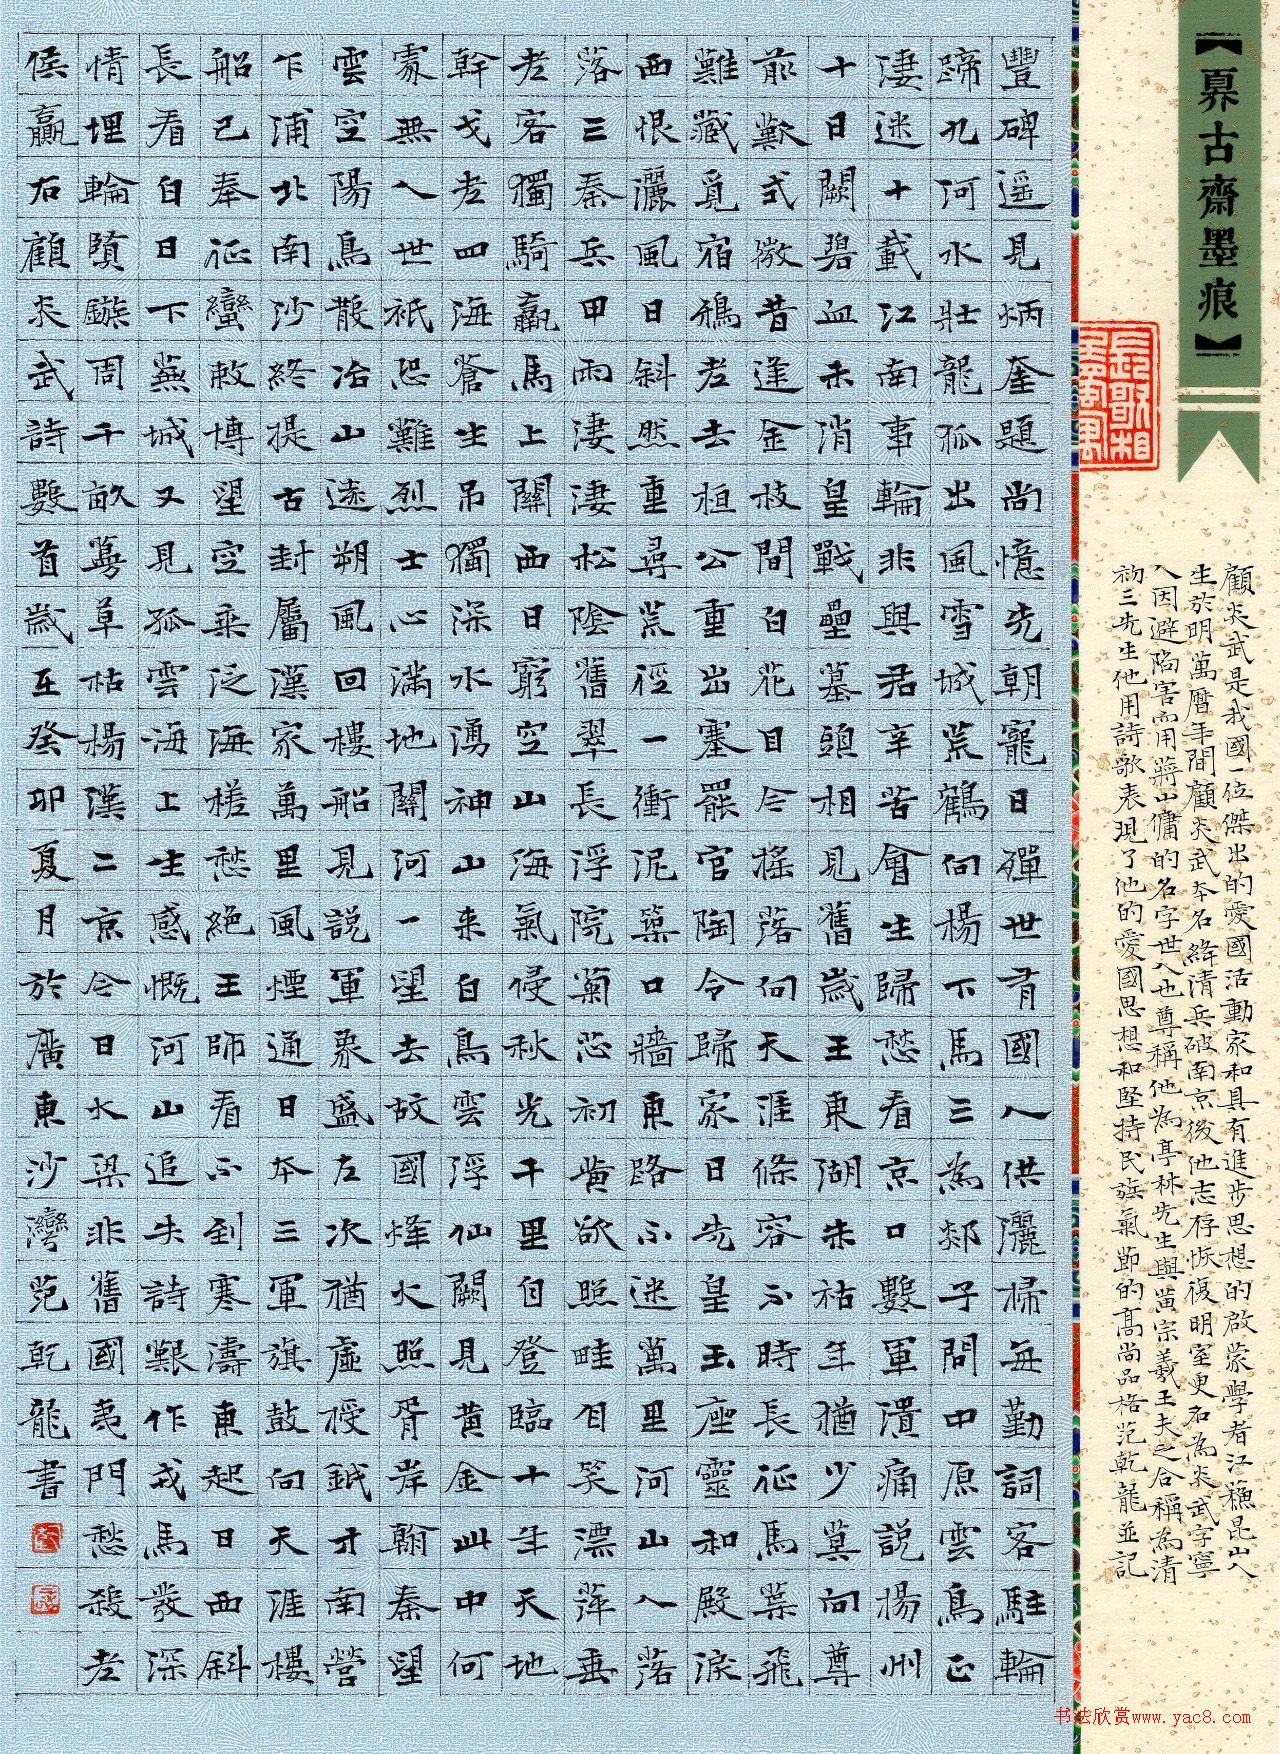 【奡古齋墨痕】
顧炎武是我國一位傑出的愛國活動家和具有進步思想的啟蒙學者江蘇昆山人
生於明萬曆年間顧炎武本名絳清兵破南京後他志存恢復明室更名為炎武字寧
人因避陷害而用蔣山傭的名字世人也尊稱他為亭林先生與黃宗羲王夫之合稱為清
初三先生他用詩歌表現了他的愛國思想和堅持民族氣節的高尚品格范乾龍並記
豐碑遥見炳奎題尚憶先朝寵日磾世有國人供灑掃每勤詞客駐輪
蹄九河水壯龍孤出風雪城荒鶴向楊下馬三為郯子問中原雲鳥正
淒迷十載江南事輪非與君辛苦會生歸愁看京口數軍潰痛說楊州
十日闕碧血未消皇戰壘墓頭相見舊歲王東湖朱祜年猶少莫向尊
前獸式微昔進金枝間白花日今搖落向天涯條容不時長征馬葉飛
難藏覓宿鴉老去桓公重出塞罷官陶令歸家日先皇玉座靈和殿淚
西恨灑風日斜然重尋荒徑一衝泥築口牆東路不迷萬里河山人落
落三秦兵甲雨淒淒松陰舊翠長浮院菊芯初黃欲照畦自笑漂萍垂
老客獨騎羸馬上關西日窮空山海氣侵秋光千里自登臨十年天地
幹戈老四海蒼生吊獨深水湧神山来白鳥雲浮仙闕見黃金此中何
處無人世祇恐難烈士心滿地關河一望去故國烽火照胥岸翰秦望
雲空陽鳥散冶山遠朔風回樓船見說軍象盛左次猶虛授鉞才南營
乍浦北南沙終提古封屬漢家萬里風煙通日本三軍旗鼓向天涯樓
船已奉征蠻敕博望空乘泛海槎愁絕王師看不到寒濤東起日西斜
長看白日下蕪城又見孤雲海上生感慨河山追失詩艱作戎馬發深
情埋輪隕鏃周千畝蔓草枯楊漢二京今日大梁非舊國夷門愁殺老
侯嬴右顧炎武詩數首歲在癸卯夏月於廣東沙灣范乾龍書
书法欣赏www.yac8.com